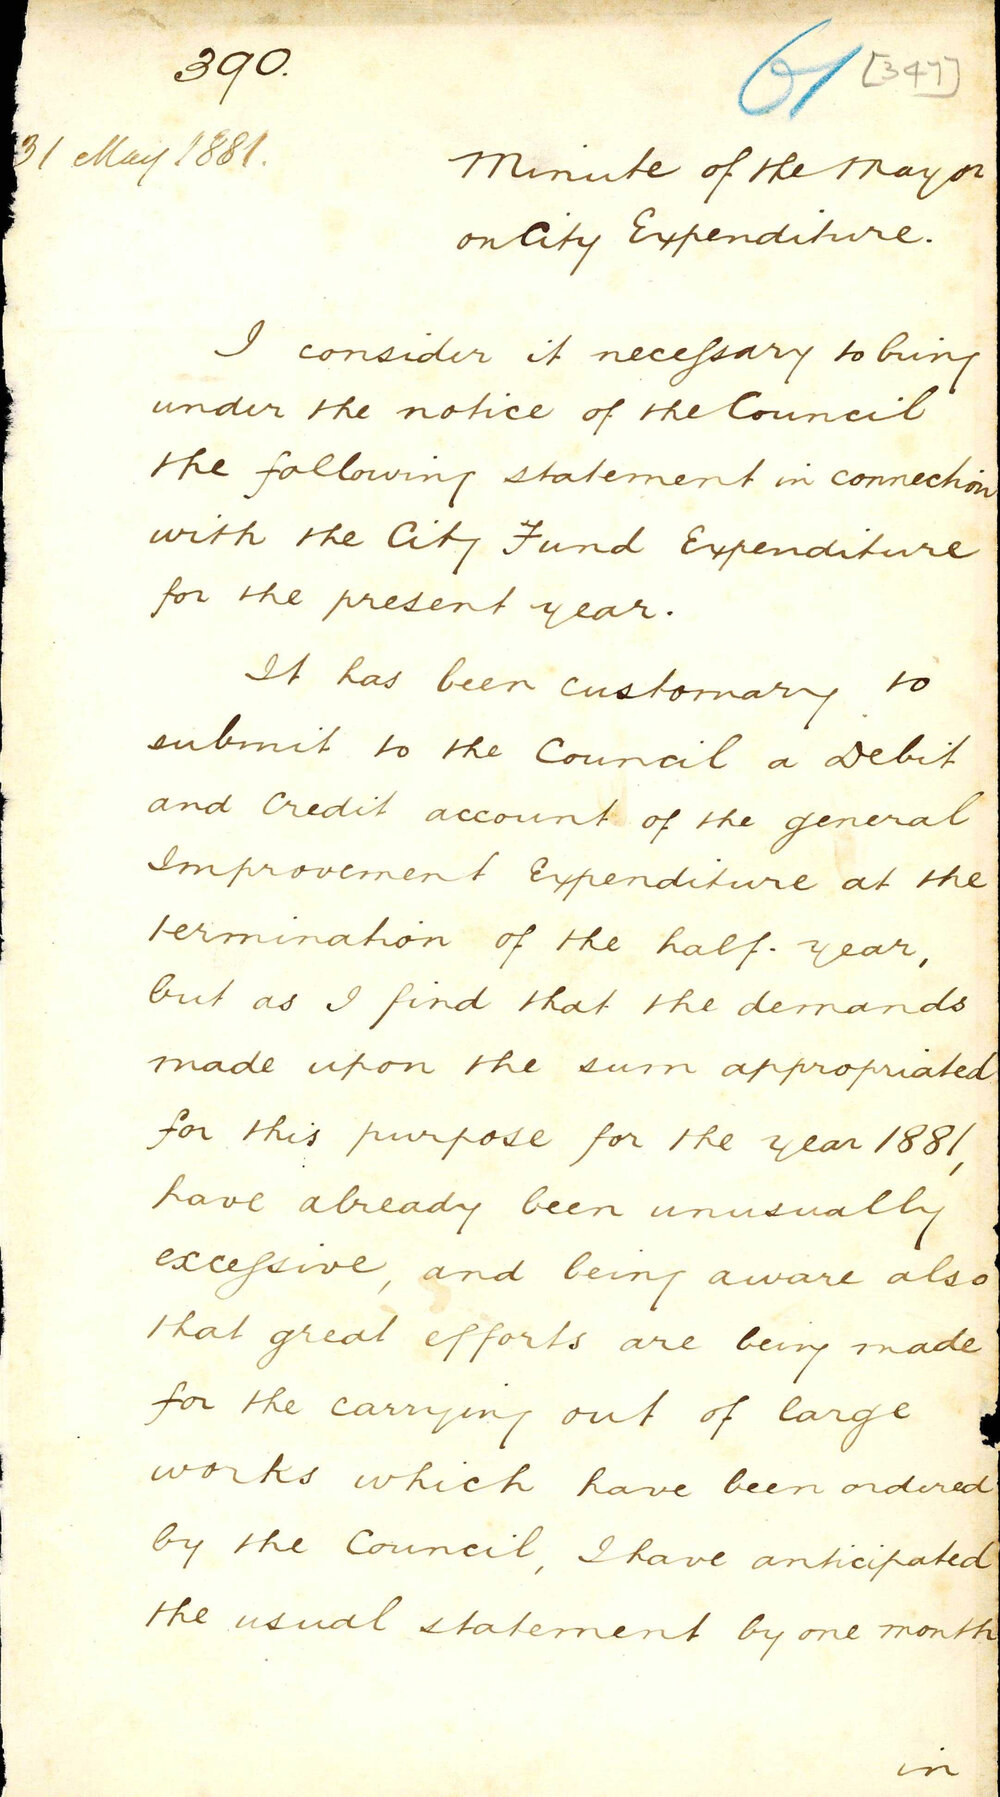 390.
61 [347]
31 May 1881.
Minute of the Mayor
on City Expenditure.
I consider it necessary to bring
under the notice of the Council
the following statement in connection
with the City Fund Expenditure
for the present year.
It has been customary to
submit to the Council a Debit
and Credit account of the general
Improvement Expenditure at the
termination of the half-year,
but as I find that the demands
made upon the sum appropriated
for this purpose for the year 1881,
have already been unusually
excessive, and being aware also
that great efforts are being made
for the carrying out of large
works which have been ordered
by the Council, I have anticipated
the usual statement by one month
in